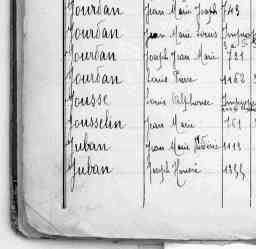 Jourdan Jean Marie Joseph 743
Jourdan Jean Marie Louis
Jourdan Joseph Jean Marie 731
Jourdan Louis Pierre 1162
Jousse Louis Alphonse
Jousselin Jean Marie 761
Juban Jean Marie 1113
Juban Joseph Honoré